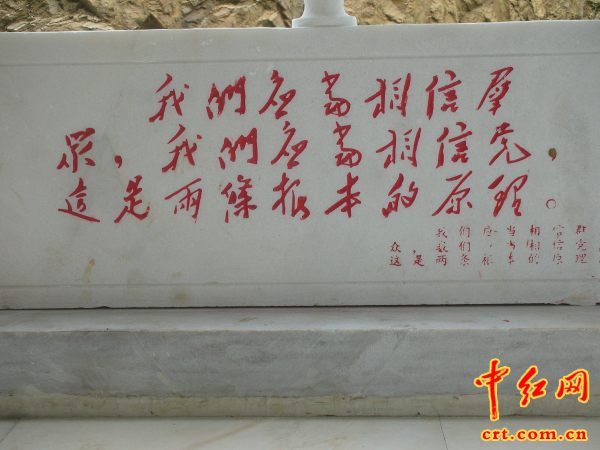 我們应當相信羣
眾，我們应當相信党，
這是兩條根本的原理。
我们应当相信群
众，我们应当相信党，
这是两条根本的原理。
中红网
crt.com.cn